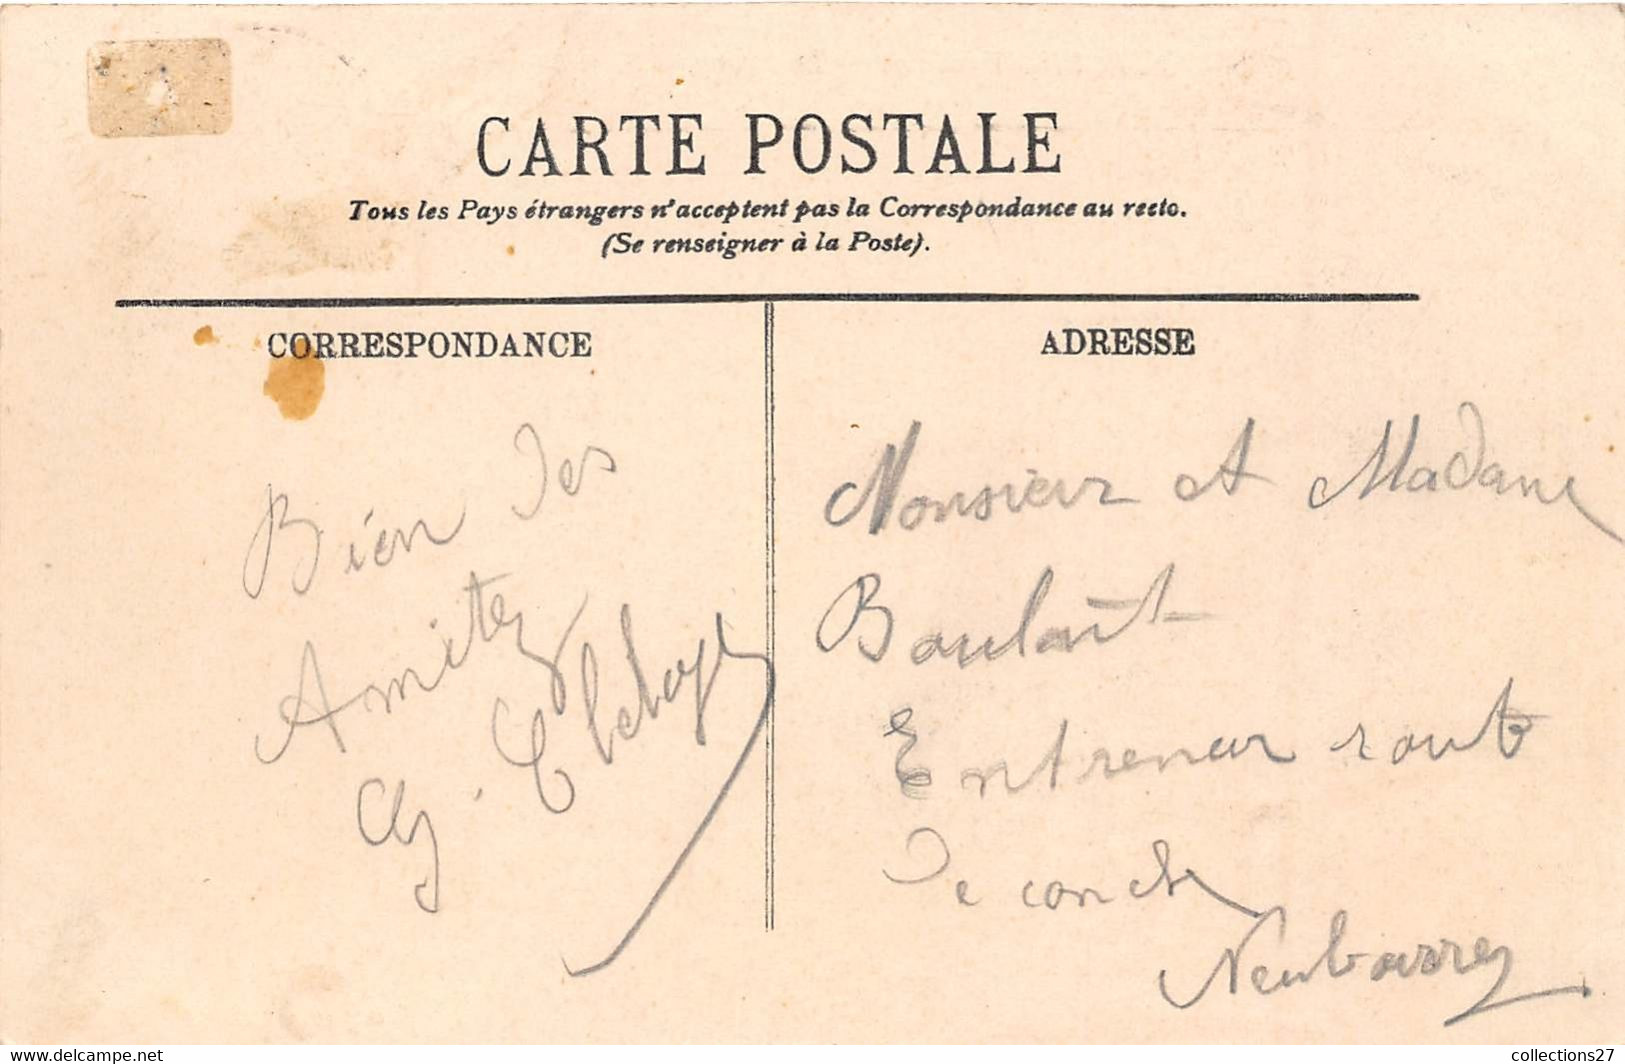 CARTE POSTALE
Tous les Pays étrangers n'acceptent pas la Correspondance au recto.
(Se renseigner à la Poste).
CORRESPONDANCE
Bien des
Amitez
ADRESSE
Monsieur et Madame
Entreneur route
De conch
Neubourg
www.delcampe.net
collections27